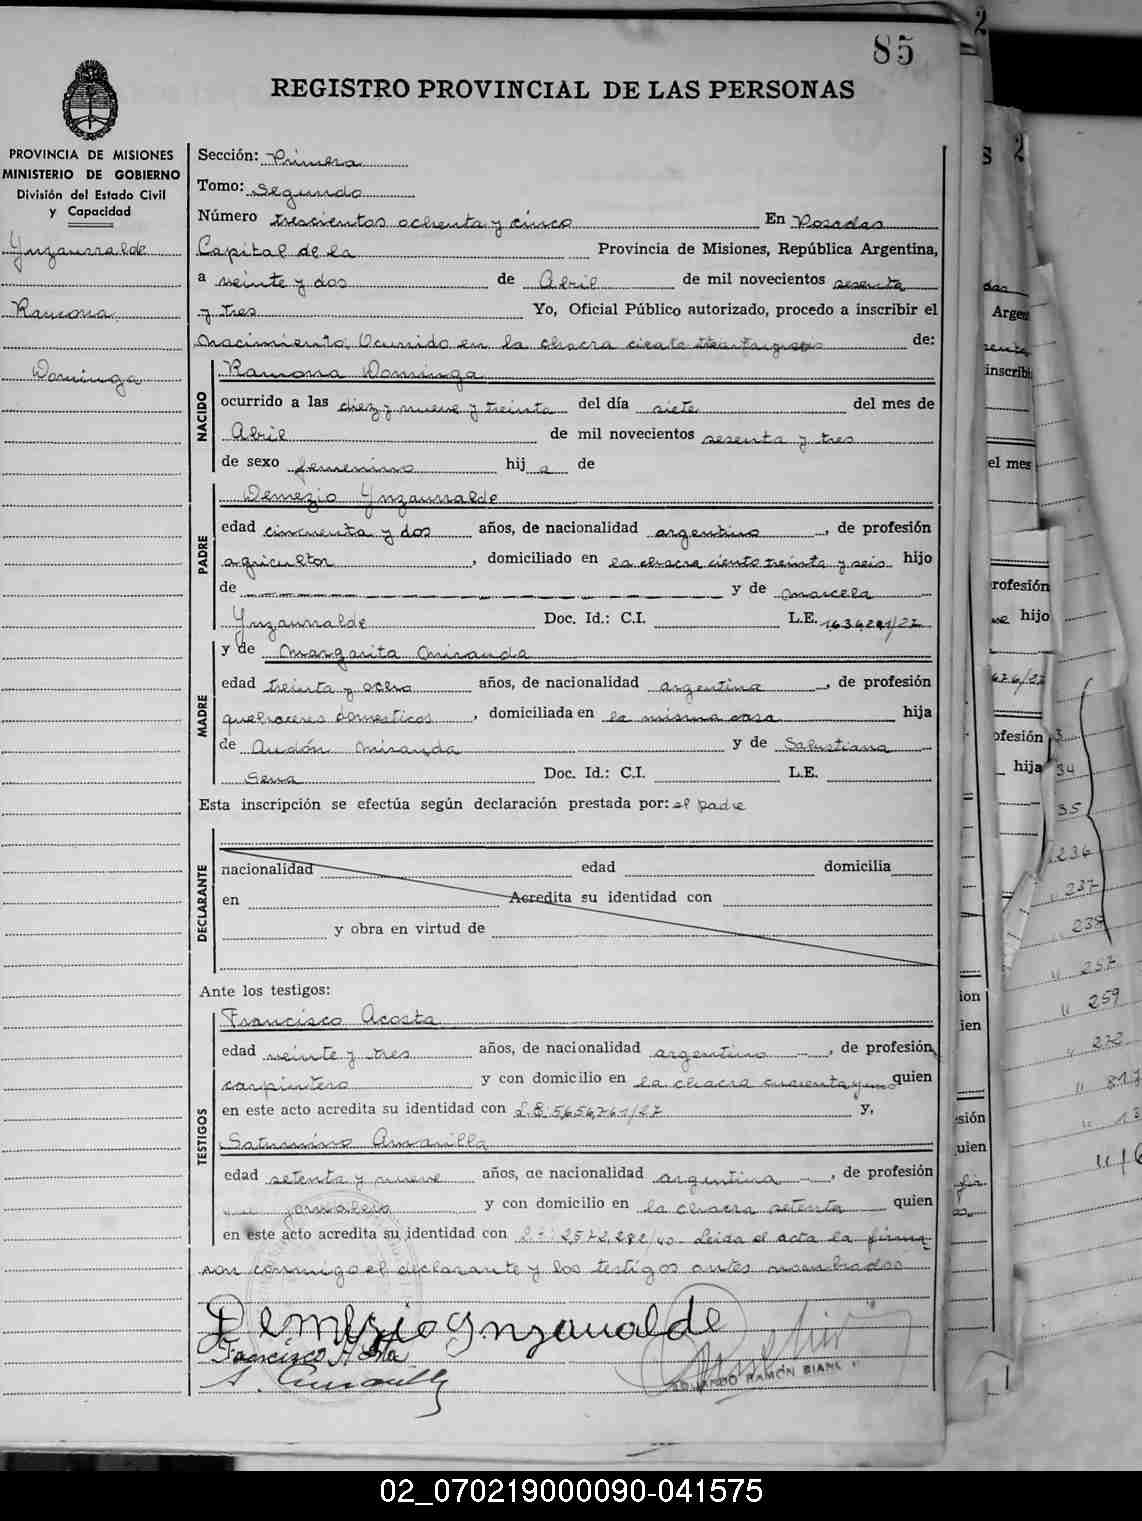 85
REGISTRO PROVINCIAL DE LAS PERSONAS
PROVINCIA DE MISIONES
MINISTERIO DE GOBIERNO
División del Estado Civil
y Capacidad
Ynzaurralde
Ramona
Dominga
Sección: Primera
Tomo: Segundo
Número trescientos ochenta y cinco En Posadas
Capital de la Provincia de Misiones, República Argentina,
a veinte y dos de Abril de mil novecientos sesenta
y tres Yo, Oficial Público autorizado, procedo a inscribir el
nacimiento, Ocurrido en la chacra de:
NACIDO
Ramona Dominga
ocurrido a las diez y nueve y treinta del día siete del mes de
Abril de mil novecientos sesenta y tres
de sexo femenino hij a de
PADRE
Demezio Ynzaurralde
edad cincuenta y dos años, de nacionalidad argentino, de profesión
agricultor, domiciliado en la chacra ciento treinta y seis hijo
de y de Marcela
Ynzaurralde Doc. Id.: C.I. L.E.
y de Margarita Miranda
MADRE
edad treinta y ocho años, de nacionalidad argentina, de profesión
quehaceres domesticos, domiciliada en la misma casa hija
de Audón Miranda y de Salustiana
Sena Doc. Id.: C.I. L.E.
Esta inscripción se efectúa según declaración prestada por: el padre
DECLARANTE
nacionalidad edad domicilia
en Acredita su identidad con
y obra en virtud de
Ante los testigos:
TESTIGOS
Francisco Acosta
edad veinte y tres años, de nacionalidad argentino, de profesión
carpintero y con domicilio en la chacra cuarenta y uno quien
en este acto acredita su identidad con L.E. 5.656.761/27 y,
Saturnino Amarilla
edad setenta y nueve años, de nacionalidad argentina, de profesión
jornalero y con domicilio en la chacra setenta quien
en este acto acredita su identidad con 2.572.282/40. Leida el acta la firma
son conmigo el declarante y los testigos antes nombrados
Demezio Ynzaurralde
Francisco A
S. Amarilla
RAMÓN BIAN
02_070219000090-041575